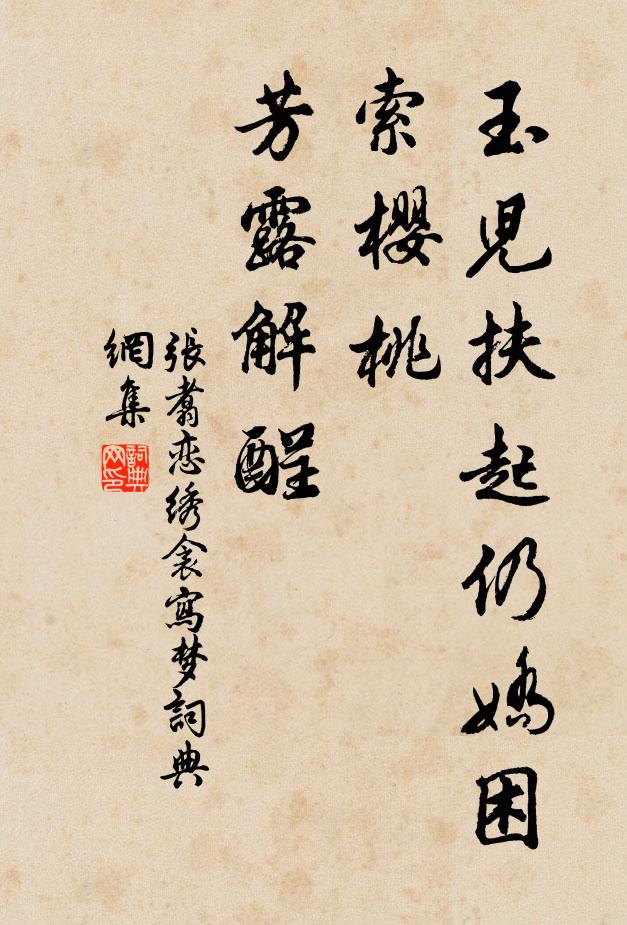 玉児扶起仍嬌困
索櫻桃
芳露解酲
張翥恋绣衾寫梦詞典
網集
詞典网印